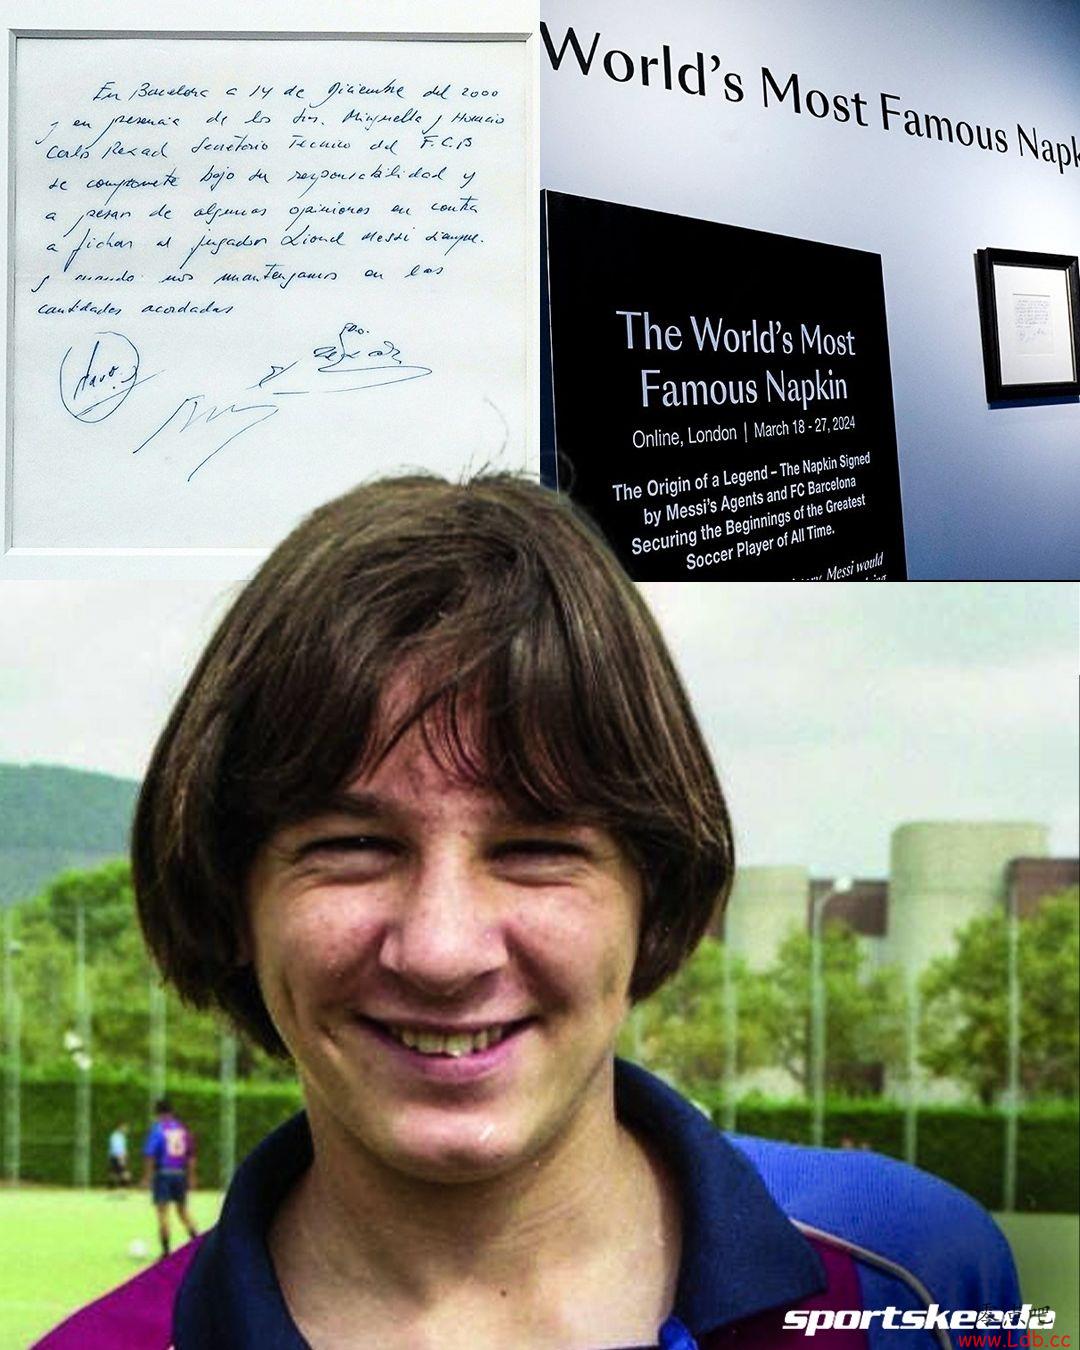 En Barcelona a 14 de Diciembre del 2000
y en presencia de los Srs. Minguella y Horacio
Carlo Rexad Secretario Técnico del F.C.B
se compromete bajo su responsabilidad y
a pesar de algunas opiniones en contra
a fichar al jugador Lionel Messi siempre.
y cuando nos mantengamos en las
cantidades acordadas
World's Most Famous Napk
The World's Most
Famous Napkin
Online, London | March 18 - 27, 2024
The Origin of a Legend – The Napkin Signed
by Messi's Agents and FC Barcelona
Securing the Beginnings of the Greatest
Soccer Player of All Time.
Messi would
sportskeeda
www.Ldb.cc